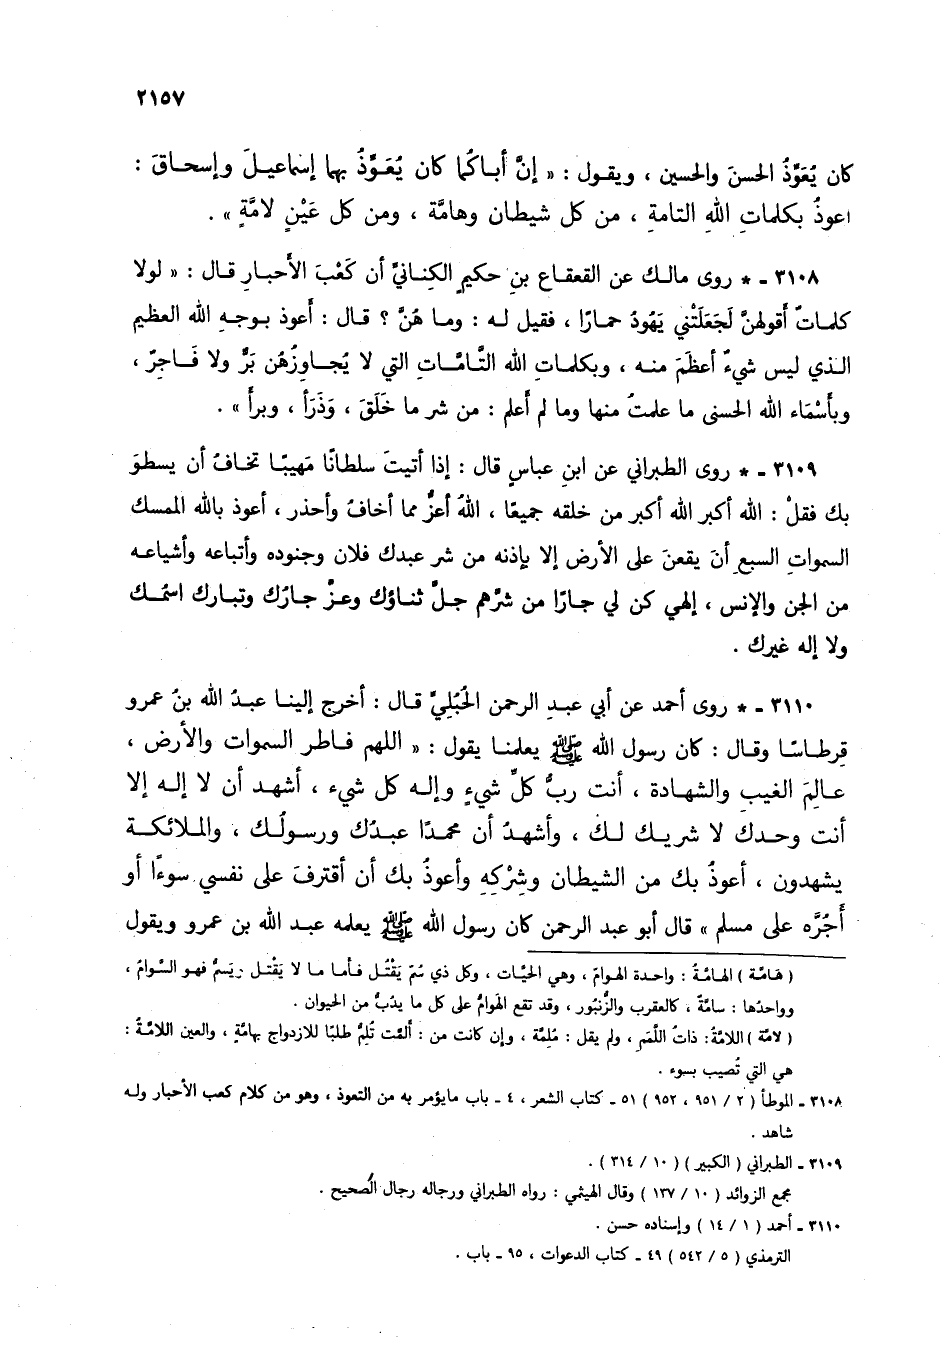 ٢١٥٧
كان يُعَوِّذُ الحسنَ والحسين ، ويقـول : « إنَّ أبـاكُما كان يُعَـوِّذُ بها إسْماعيـلَ وإسحـاقَ :
اعوذُ بكلماتِ اللهِ التامةِ ، من كل شيطان وهامَّة ، ومن كل عَيْنٍ لامَّةٍ » .
٣١٠٨ ـ * روى مالـك عن القعقـاع بنِ حكيمٍ الكِنـانيِّ أن كَعْبَ الأَحبـارِ قـال : « لولا
كلمـاتٌ أقولهنَّ لَجَعَلَتْني يَهُودُ حمـارًا ، فقيل لـه : ومـا هُنَّ ؟ قـال : أَعوذ بـوجـهِ الله العظيم
الـذي ليس شيءٌ أعظمَ منـه ، وبكلمـاتِ الله التَّامَّـاتِ التي لا يُجـاوزُهُن بَرٌّ ولا فَـاجِرٌ ،
وبأَسْمَاء الله الحسنى ما علمتُ منها وما لم أَعلم : من شر ما خَلَقَ ، وَذَرَأَ ، وبرأَ » .
٣١٠٩ ـ * روى الطبراني عن ابنِ عباسٍ قال : إذا أتيتَ سلطانًا مَهيبًا تخـافُ أن يسطوَ
بك فقلْ : الله أكبر الله أكبر من خلقه جميعًا ، اللهُ أعزُّ مما أخافُ وأحذر ، أعوذ بالله الممسك
السمواتِ السبع أنَ يقعنَ على الأرض إلا بإذنه من شر عبدك فلان وجنوده وأتباعه وأشياعـه
من الجن والإنس ، إلهي كن لي جـارًا من شرِّهم جـلَّ ثنـاؤك وعـزَّ جـارُك وتبـارك اسمُـك
ولا إله غيرك .
٣١١٠ ـ * روى أحمد عن أبي عبـدِ الرحمن الحُبُلِيِّ قـال : أخرج إلينـا عبـدُ الله بنُ عمرو
قِرطـاسًـا وقـال : كان رسول الله ﷺ يعلمنـا يقول : « اللهم فـاطر السموات والأرض ،
عـالِمَ الغيب والشهـادة ، أنت ربُّ كلِّ شيءٍ وإلـه كل شيء ، أشهـد أن لا إلـه إلا
أنت وحـدك لا شريـك لـك ، وأشهـدُ أن محمـدًا عبـدُك ورسـولُـك ، والمـلائكـة
يشهدون ، أعوذُ بك من الشيطان وشِرْكِهِ وأعوذُ بك أن أقترفَ على نفسي سوءًا أو
أَجُرَّه على مسلم » قال أبو عبد الرحمن كان رسول الله ﷺ يعلمه عبـد الله بن عمرو ويقول
( هَامّـة ) الهـامّـةُ : واحـدة الهـوامّ ، وهي الحيّـات ، وكل ذي سُمّ يَقْتُـل فـأمـا مـا لا يَقْتـل ريَسُمُّ فهـو السَّوامّ ،
وواحدُها : سامَّة ، كالعقرب والزُّنبُور ، وقد تقع الهَوامُّ على كل ما يدُبُّ من الحيوان .
( لامّة ) اللامّةُ : ذاتُ اللَّمَم ، ولم يقل : مُلِمَّة ، وإن كانت من : أَلَمّت تُلِمُّ طلبًا للازدواج بهامّةٍ ، والعين اللامَّـةُ :
هي التي تُصيب بسوء .
٣١٠٨ ـ الموطأ ( ٢ / ٩٥١ ، ٩٥٢ ) ٥١ ـ كتاب الشعر ، ٤ ـ باب مايؤمر به من التعوذ ، وهو من كلام كعب الأحبار ولـه
شاهد .
٣١٠٩ ـ الطبراني ( الكبير ) ( ١٠ / ٣١٤ ) .
مجمع الزوائد ( ١٠ / ١٣٧ ) وقال الهيثمي : رواه الطبراني ورجاله رجال الصحيح .
٣١١٠ ـ أحمد ( ١ / ١٤ ) وإسناده حسن .
الترمذي ( ٥ / ٥٤٢ ) ٤٩ ـ كتاب الدعوات ، ٩٥ ـ باب .